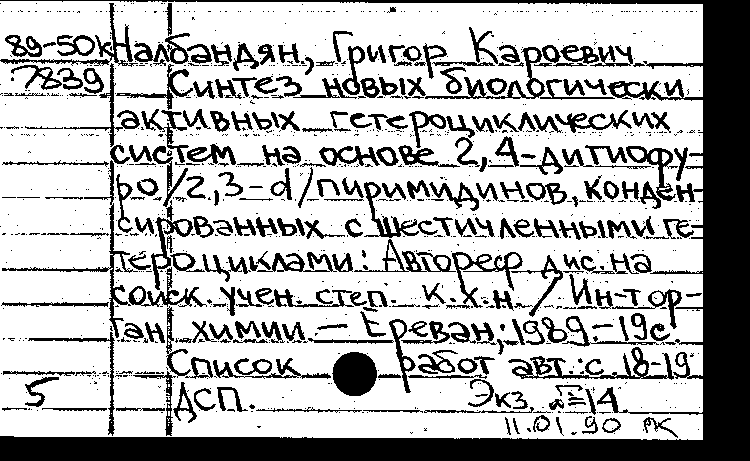 89-50к Налбандян, Григор Кароевич
7839 Синтез новых биологически
активных гетероциклических
систем на основе 2,4-дитиофу-
ро/2,3-d/пиримидинов, конден-
сированных с шестичленными ге-
тероциклами: Автореф дис. на
соиск. учен. степ. к.х.н. / Ин-т ор-
ган химии. — Ереван, 1989.-19с.
Список работ авт.: с. 18-19
5 ДСП. Экз. №14
11.01.90